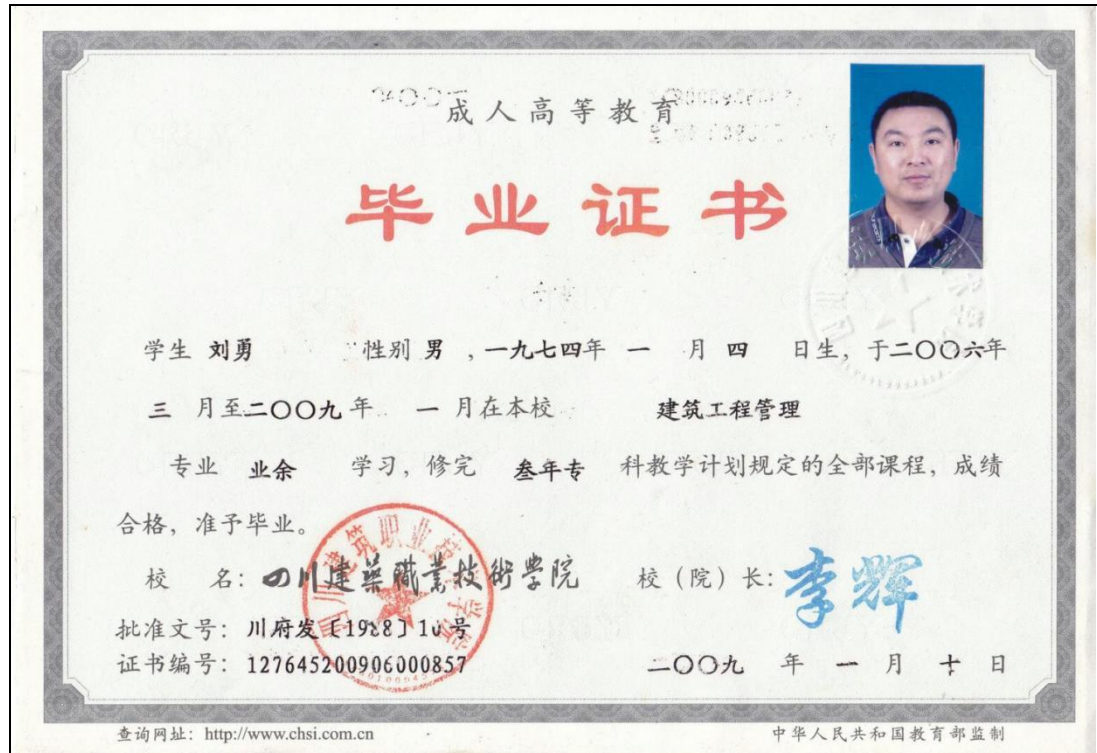 成人高等教育
毕业证书
学生 刘勇 性别 男 ，一九七四年 一 月 四 日生，于二〇〇六年
三 月至二〇〇九 年 一 月在本校 建筑工程管理
专业 业余 学习，修完 叁年专 科教学计划规定的全部课程，成绩
合格，准予毕业。
校 名：四川建築職業技術學院 校（院）长：李辉
批准文号：川府发〔1988〕10号
证书编号：127645200906000857 二〇〇九 年 一 月 十 日
查询网址：http://www.chsi.com.cn 中华人民共和国教育部监制
四川建筑职业技术学院